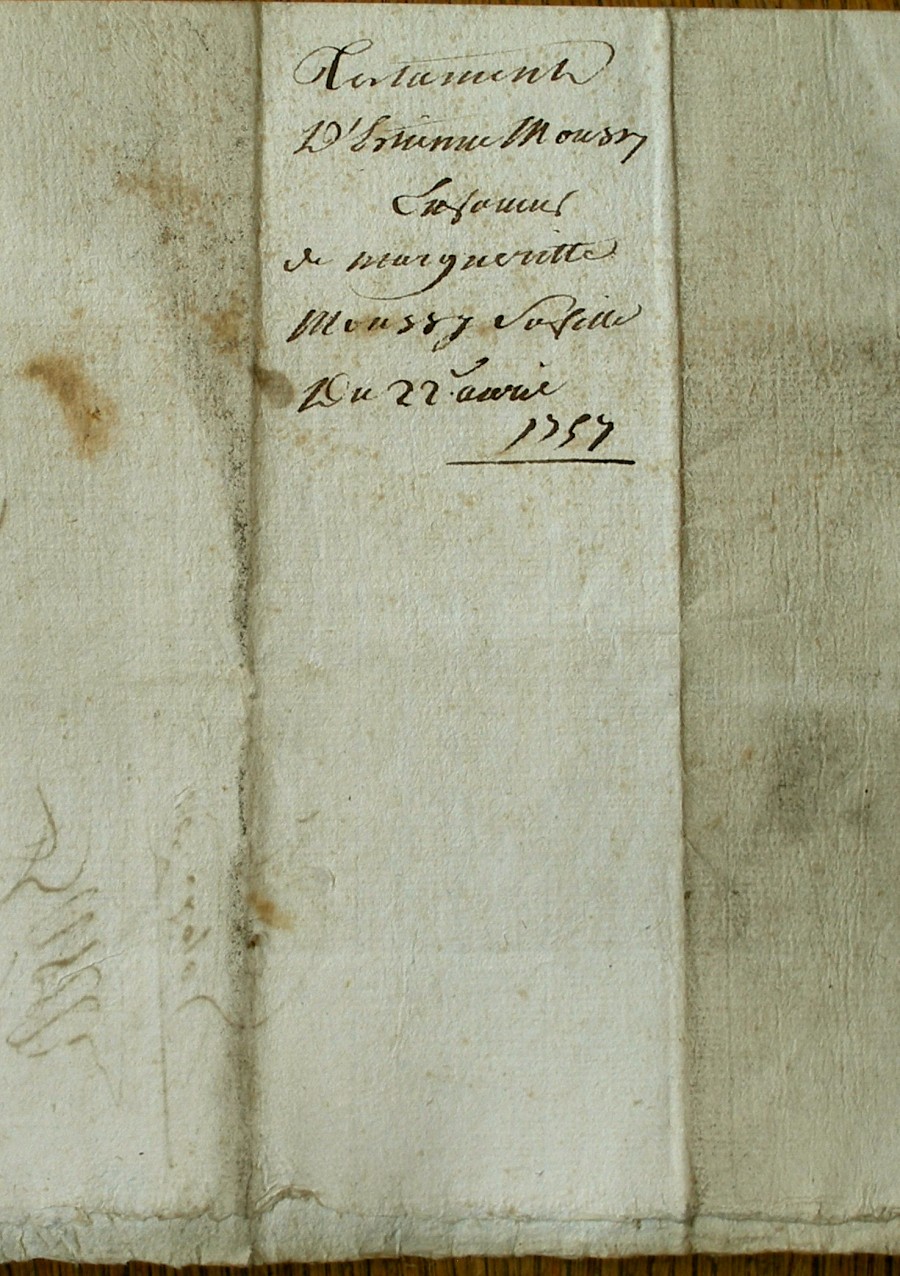 Testament
D'Estienne Moussy
En faveur
de margueritte
Moussy Sa fille
Du 22e. avril
1757